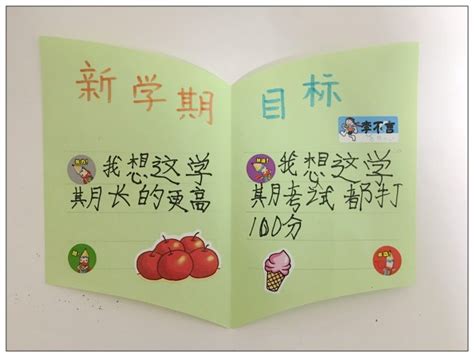 新学期
目标
李不言
我想这学
其月长的更高
我想这学
其月考试都打
100分